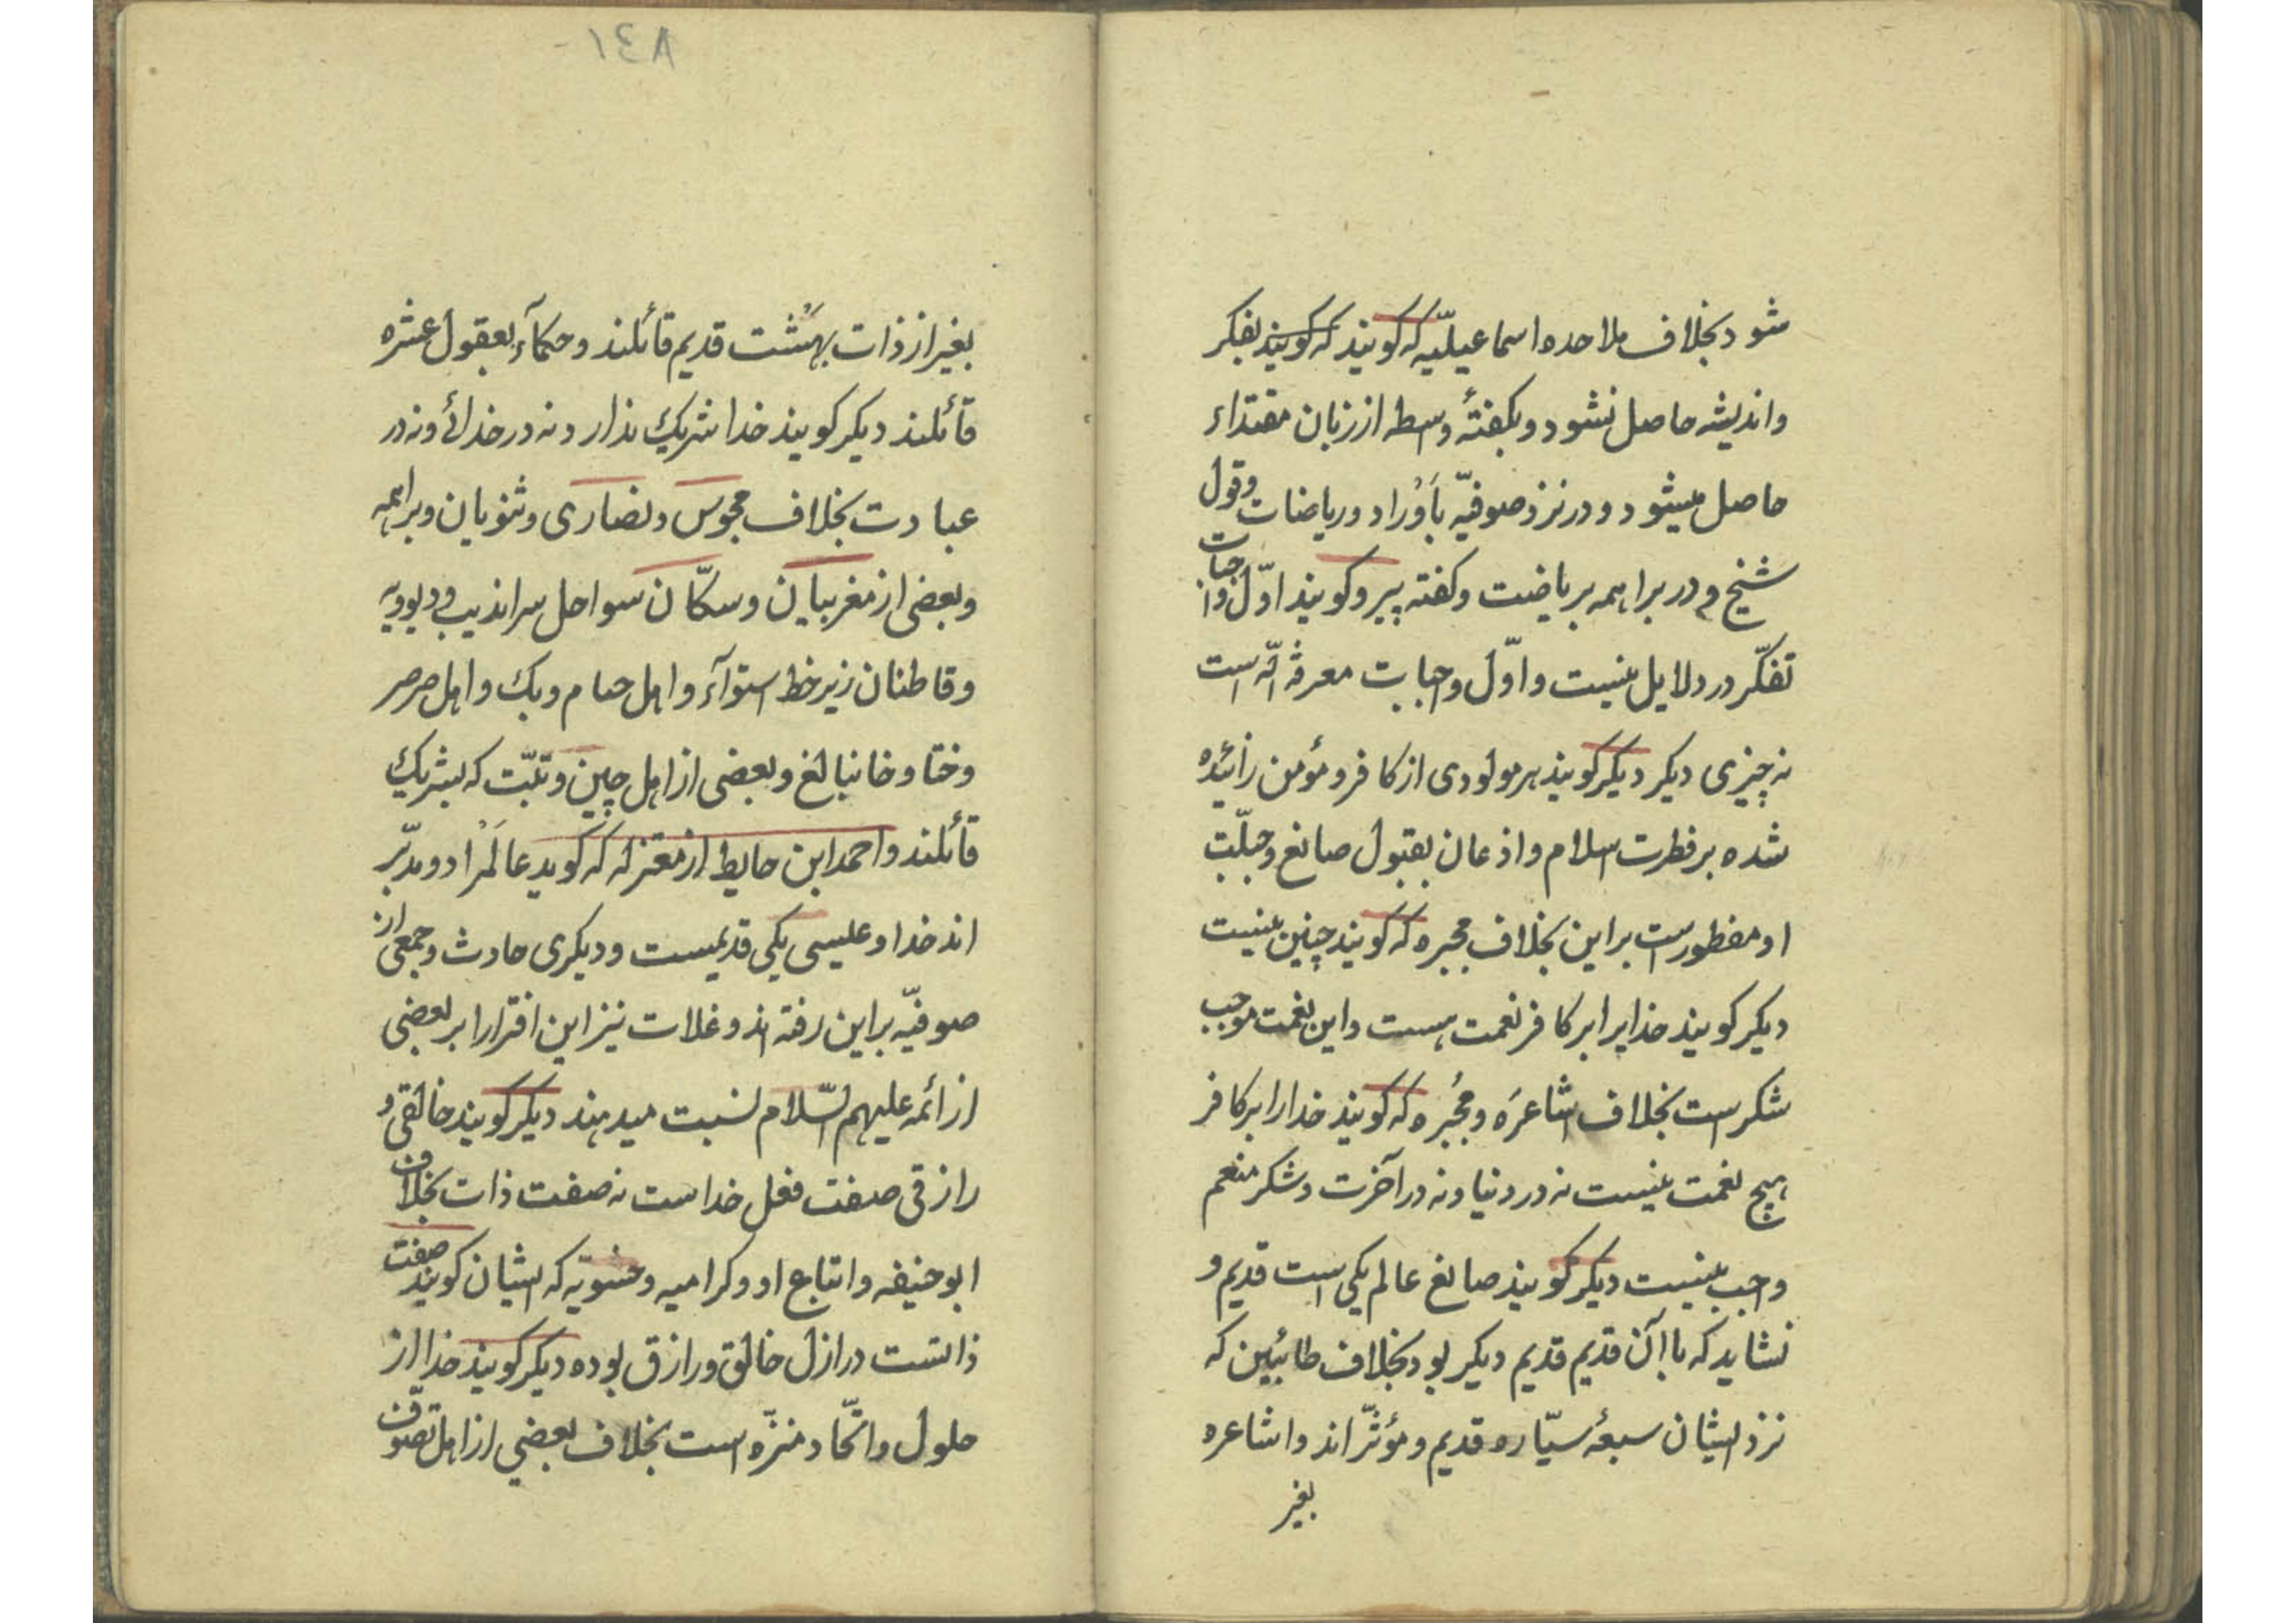 شود بخلاف ملاحده اسماعیلیّه که کویند که کویند بفکر
واندیشه حاصل نشود و بکفتهٔ وسطه از زبان مقتداء
حاصل میشود و در نزد صوفیّه بَاوْراد و ریاضات وقول
شیخ و در براهمه بریاضت وکفته پیر وکویند اوّل واجبات
تفکّر در دلایل نیست و اوّل واجبات معرفة الله است
نه چیزی دیکر دیکر کویند هر مولودی از کافر و مؤمن زائیده
شده بر فطرت اسلام و اذعان بقبول صانع وجبلّت
او مفطورست بر این بخلاف مجبره که کویند چنین نیست
دیکر کویند خدایرا بر کافر نعمت هست و این نعمت موجب
شکر است بخلاف اشاعرَه و مجْبُره که کویند خدارا بر کافر
هیچ نعمت نیست نه در دنیا و نه در آخرت و شکر منعم
واجب نیست دیکر کویند صانع عالم یکی است قدیم و
نشاید که با آن قدیم قدیم دیکر بود بخلاف طائبین که
نزد ایشان سبعهٔ سیّاره قدیم و مؤثّر اند و اشاعره
بغیر
١٤٨
بغیر از ذات بهَشت قدیم قائلند و حکمآء بعقول عشره
قائلند دیکر کویند خدا شریك ندارد نه در خدائی و نه در
عبادت بخلاف مجوس و نصاری و ثنویان و براهمه
و بعضی از مغربیان و سکّان سواحل سراندیب و دیوویه
و قاطنان زیر خط استوآء و اهل حسام و بك و اهل صرصر
وختا و خانبالغ و بعضی از اهل چین و تبّت که بشریك
قائلند و احمد ابن حایط از معتزله که کوید عالمَرْا دو مدبّر
اند خدا و عیسی یکی قدیمست و دیکری حادث و جمعی از
صوفیّه بر این رفته اند و غلات نیز این افترا را بر بعضی
از ائمه علیهم السّلام نسبت میدهند دیکر کویند خالقی و
رازقی صفت فعل خداست نه صفت ذات بخلاف
ابو حنیفه و اتباع او و کرامیه و حشویّه که ایشان کویند صفت
ذاتست در ازل خالق و رازق بوده دیکر کویند خدا از
حلول و اتّحاد منزّه است بخلاف بعضی از اهل تصوّف